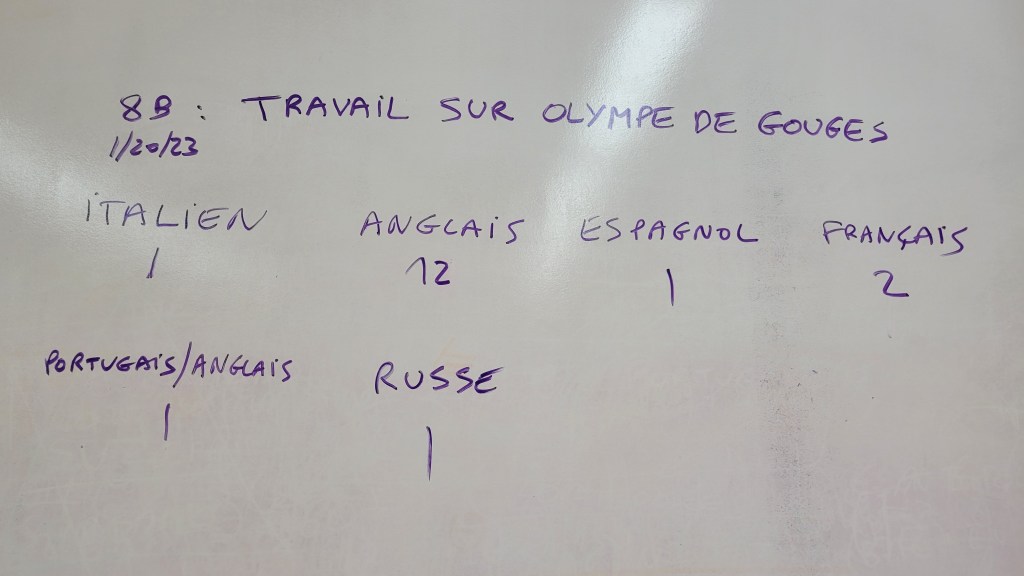 8B : TRAVAIL SUR OLYMPE DE GOUGES
1/20/23
ITALIEN ANGLAIS ESPAGNOL FRANÇAIS
1 12 1 2
PORTUGAIS/ANGLAIS RUSSE
1 1